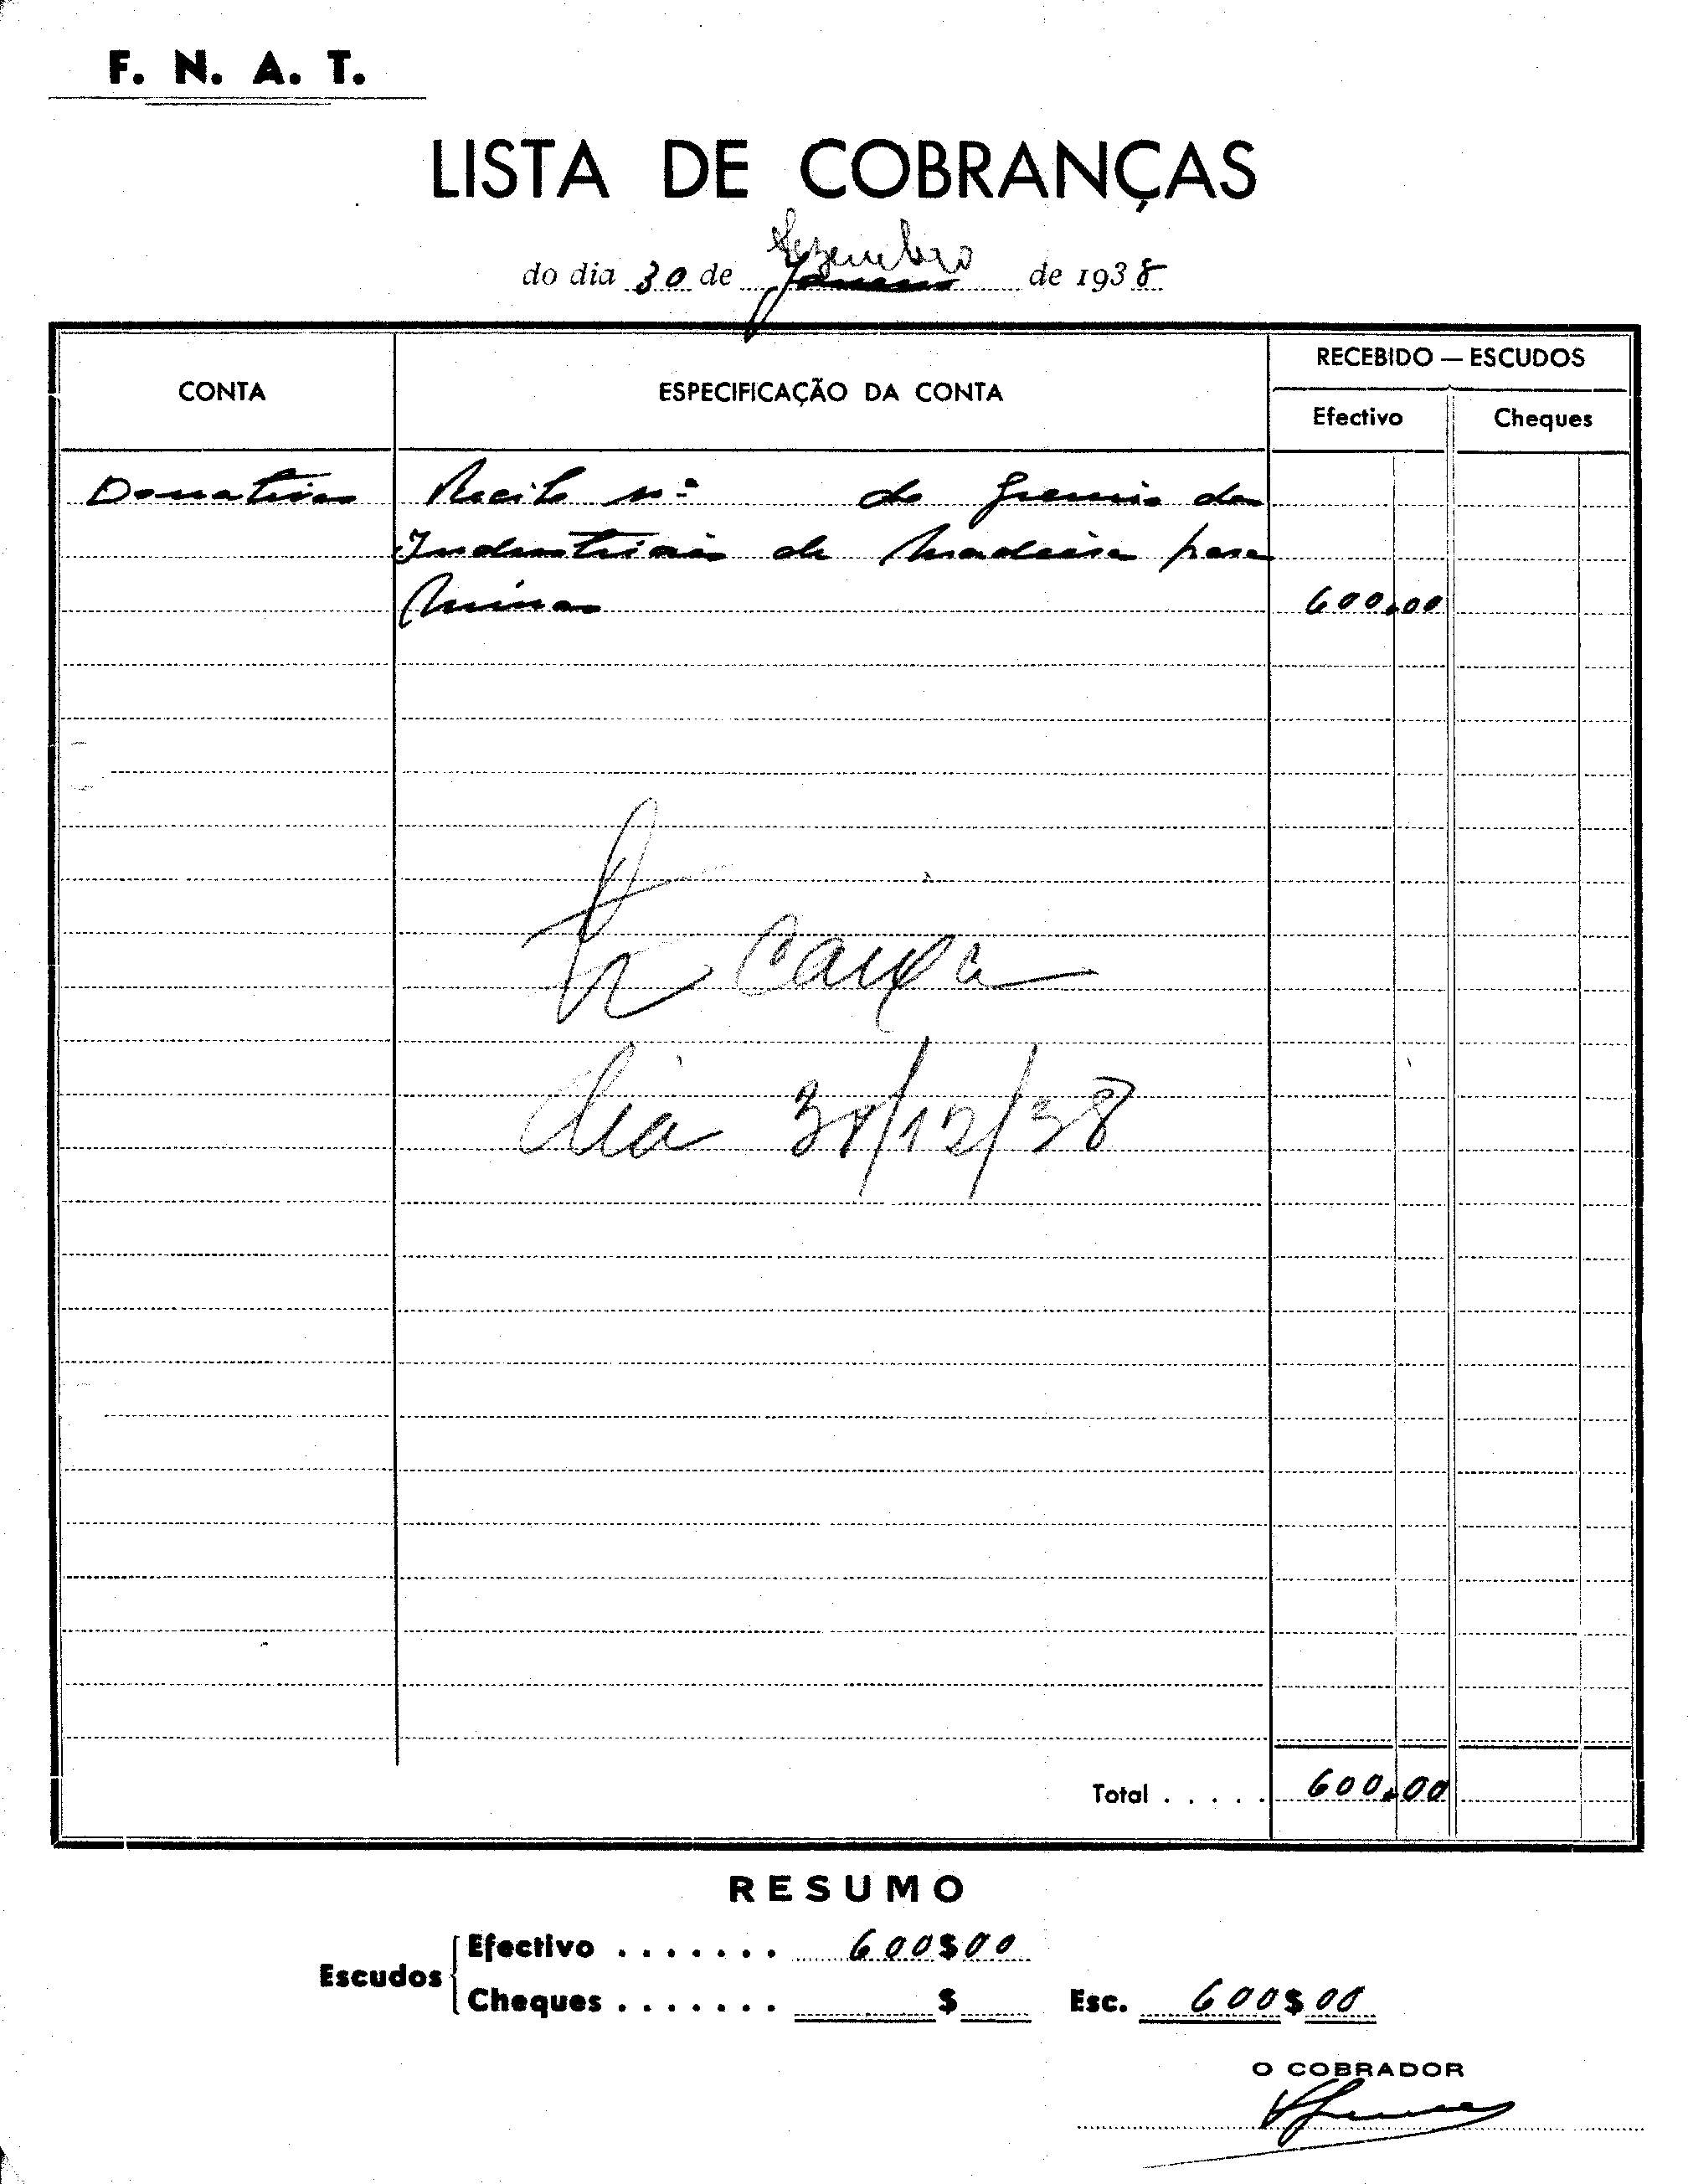 F. N. A. T.
LISTA DE COBRANÇAS
Dezembro
do dia 30 de Janeiro de 1938
CONTA
ESPECIFICAÇÃO DA CONTA
RECEBIDO — ESCUDOS
Efectivo
Cheques
Donativos Recibo nº do Gremio dos
Industriais de Madeira para
Minas 600,00
Caixa
dia 31/12/38
Total . . . . . 600,00
RESUMO
Escudos
Efectivo . . . . . . . 600$00
Cheques . . . . . . . $ Esc. 600$00
O COBRADOR